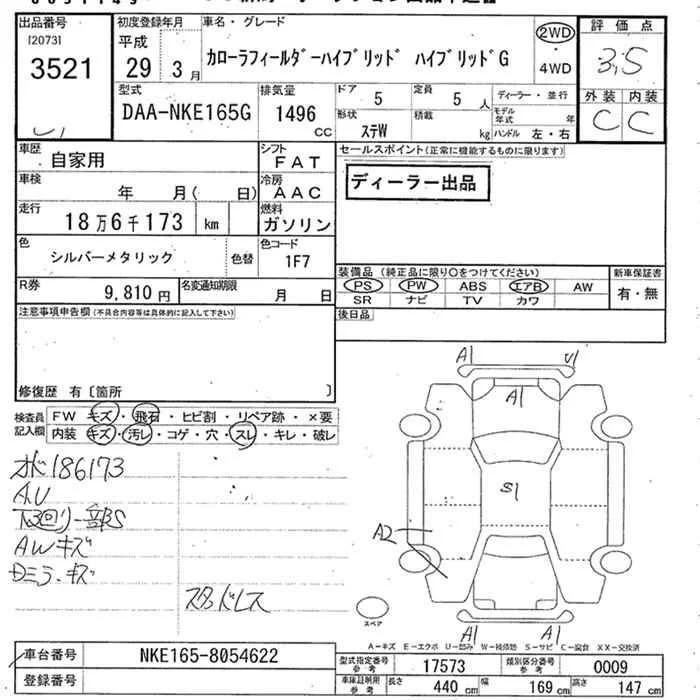 出品番号 初度登録年月 車名・グレード 評価点
[2073] 平成 2WD
3521 29 3月 カローラフィールダーハイブリッド ハイブリッドG 4WD 3,5
型式 排気量 ドア 定員 ディーラー・並行 外装 内装
DAA-NKE165G 1496 cc 5 5人 モデル年式 年 C C
形状 積載
ステW kg ハンドル 左・右
車歴 自家用 シフト FAT セールスポイント(正常に機能するものに限ります)
車検 年 月( 日) 冷房 AAC ディーラー出品
走行 18万6千173 km 燃料 ガソリン
色 シルバーメタリック 色替 色コード 1F7
装備品(純正品に限り〇をつけてください) 新車保証書
R券 9,810円 名変通知期限 月 日 PS PW ABS エアB AW 有・無
SR ナビ TV カワ
注意事項申告欄(不具合内容等は具体的に記入して下さい) 後日品
修復歴 有〔箇所 〕
検査員記入欄 FW キズ・飛石・ヒビ割・リペア跡・×要
内装 キズ・汚レ・コゲ・穴・スレ・キレ・破レ
A1 U1
A1
オド186173
AU
下回り一部S
AWキズ
Dミラーキズ
スタッドレス
S1
A2
スペア
A1 A1
A-キズ E-エクボ U-凹み W-補修跡 S-サビ C-腐食 XX-交換済
車台番号 NKE165-8054622 型式指定番号参考 17573 類別区分番号参考 0009
登録番号 車庫証明用参考 長さ 440cm 幅 169cm 高さ 147cm